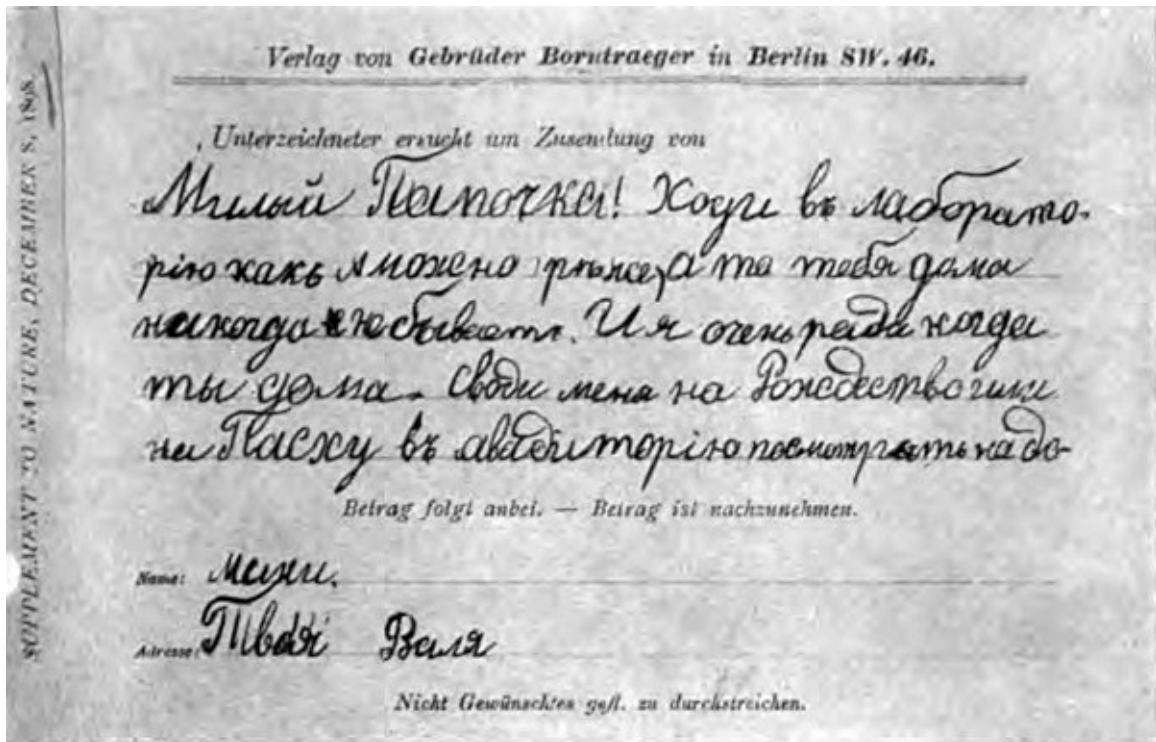 SUPPLEMENT TO NATURE, DECEMBER 8, 1898
Verlag von Gebrüder Borntraeger in Berlin SW. 46.
Unterzeichneter ersucht um Zusendung von
Милый Папочка! Ходи въ лаборато-
рію какъ можно рѣже, а то тебя дома
никогда не бываетъ. И я очень рада когда
ты дома. Своди меня на Рождество или
на Пасху въ авадиторію посмотрѣть на до-
Betrag folgt anbei. — Betrag ist nachzunehmen.
Name: махи.
Adresse: Твоя Валя
Nicht Gewünschtes gefl. zu durchstreichen.